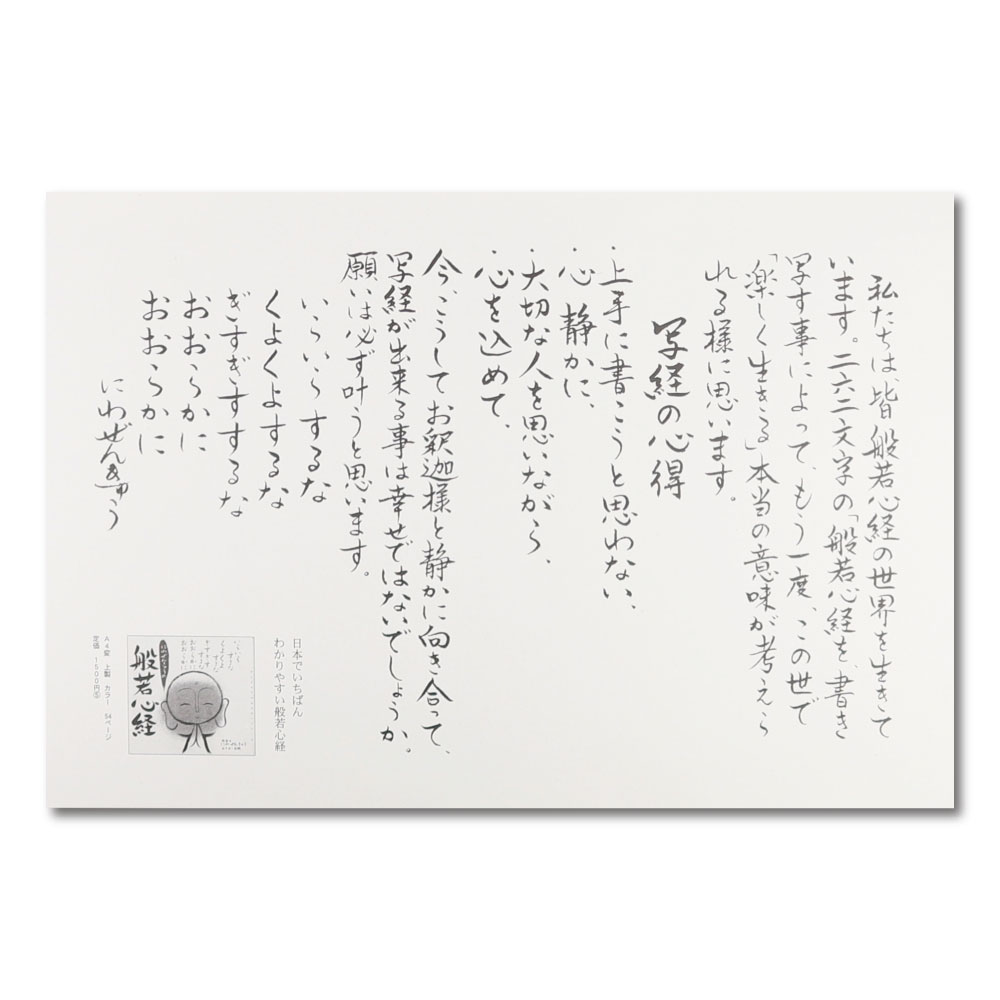 私たちは、皆般若心経の世界を生きて
います。二六二文字の「般若心経」を、書き
写す事によって、もう一度、この世で
「楽しく生きる」本当の意味が考えら
れる様に思います。
写経の心得
・上手に書こうと思わない、
・心静かに、
・大切な人を思いながら、
・心を込めて、
今、こうしてお釈迦様と静かに向き合って、
写経が出来る事は幸せではないでしょうか。
願いは必ず叶うと思います。
いらいらするな
くよくよするな
ぎすぎすするな
おおらかに
おおらかに
にわぜんきゅう
日本でいちばん
わかりやすい般若心経
般若心経
A4変 上製 カラー 54ページ
定価 1500円